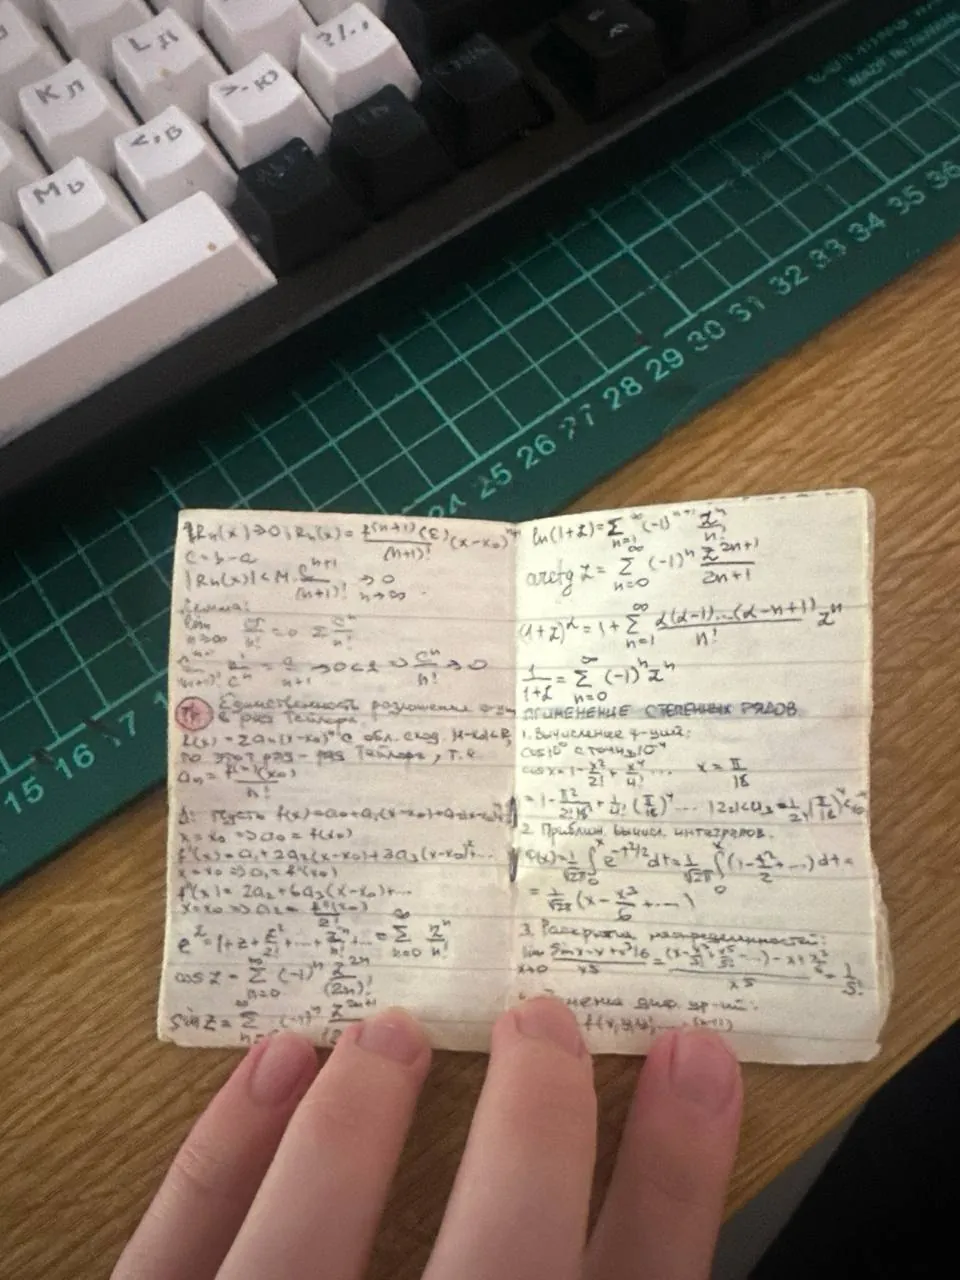 ? / . ,
L Д
> . Ю
К Л
< , Б
М Ь
15 16 17
24 25 26 27 28 29 30 31 32 33 34 35 36
Rn(x)→0, Rn(x) = f^(n+1)(ε)/(n+1)! (x-x₀)^n+1
c = b-a
|Rn(x)| < M · c^n+1/(n+1)! → 0 n→∞
Лемма:
lim n→∞ c^n/n! = 0 Σ c^n/n!
= c/n+1 → 0 < 1 ⇒ c^n/n! → 0
Единственность разложения
в ряд Тейлора.
f(x) = Σ aₙ(x-x₀)^n с обл. сход. |x-x₀|<R,
то этот ряд - ряд Тейлора, т.е.
aₙ = f^(n)(x₀)/n!
Д: пусть f(x) = a₀+a₁(x-x₀)+a₂(x-x₀)²
x = x₀ ⇒ a₀ = f(x₀)
f'(x) = a₁+2a₂(x-x₀)+3a₃(x-x₀)²...
x = x₀ ⇒ a₁ = f'(x₀)
f''(x) = 2a₂+6a₃(x-x₀)+...
x = x₀ ⇒ a₂ = f''(x₀)/2!
e^z = 1+z+z²/2!+...+z^n/n!+... = Σ n=0 ∞ z^n/n!
cos z = Σ n=0 ∞ (-1)^n z^2n/(2n)!
sin z = Σ (-1)^n z^2n+1
ln(1+z) = Σ n=1 ∞ (-1)^n+1 z^n/n!
arctg z = Σ n=0 ∞ (-1)^n z^2n+1/2n+1
(1+z)^α = 1+Σ n=1 ∞ α(α-1)...(α-n+1)/n! z^n
1/1+z = Σ n=0 ∞ (-1)^n z^n
ПРИМЕНЕНИЕ СТЕПЕННЫХ РЯДОВ
1. Вычисление ф-ций:
cos10° с точн. 10^-4
cos x = 1-x²/2!+x⁴/4!... x = π/18
= 1-π²/2!18²+1/4!(π/18)⁴...
2. Приближ. вычисл. интегралов.
Φ(x) = 1/√2π ∫0 x e^-t²/2 dt = 1/√2π ∫0 x (1-t²/2+...)dt =
= 1/√2π (x-x³/6+...)
3. Раскрытие неопределенностей:
lim x→0 sin x-x+x³/6 / x⁵ = (x-x³/3!+x⁵/5!-...)-x+x³/6 / x⁵ = 1/5!
диф. ур-ий: